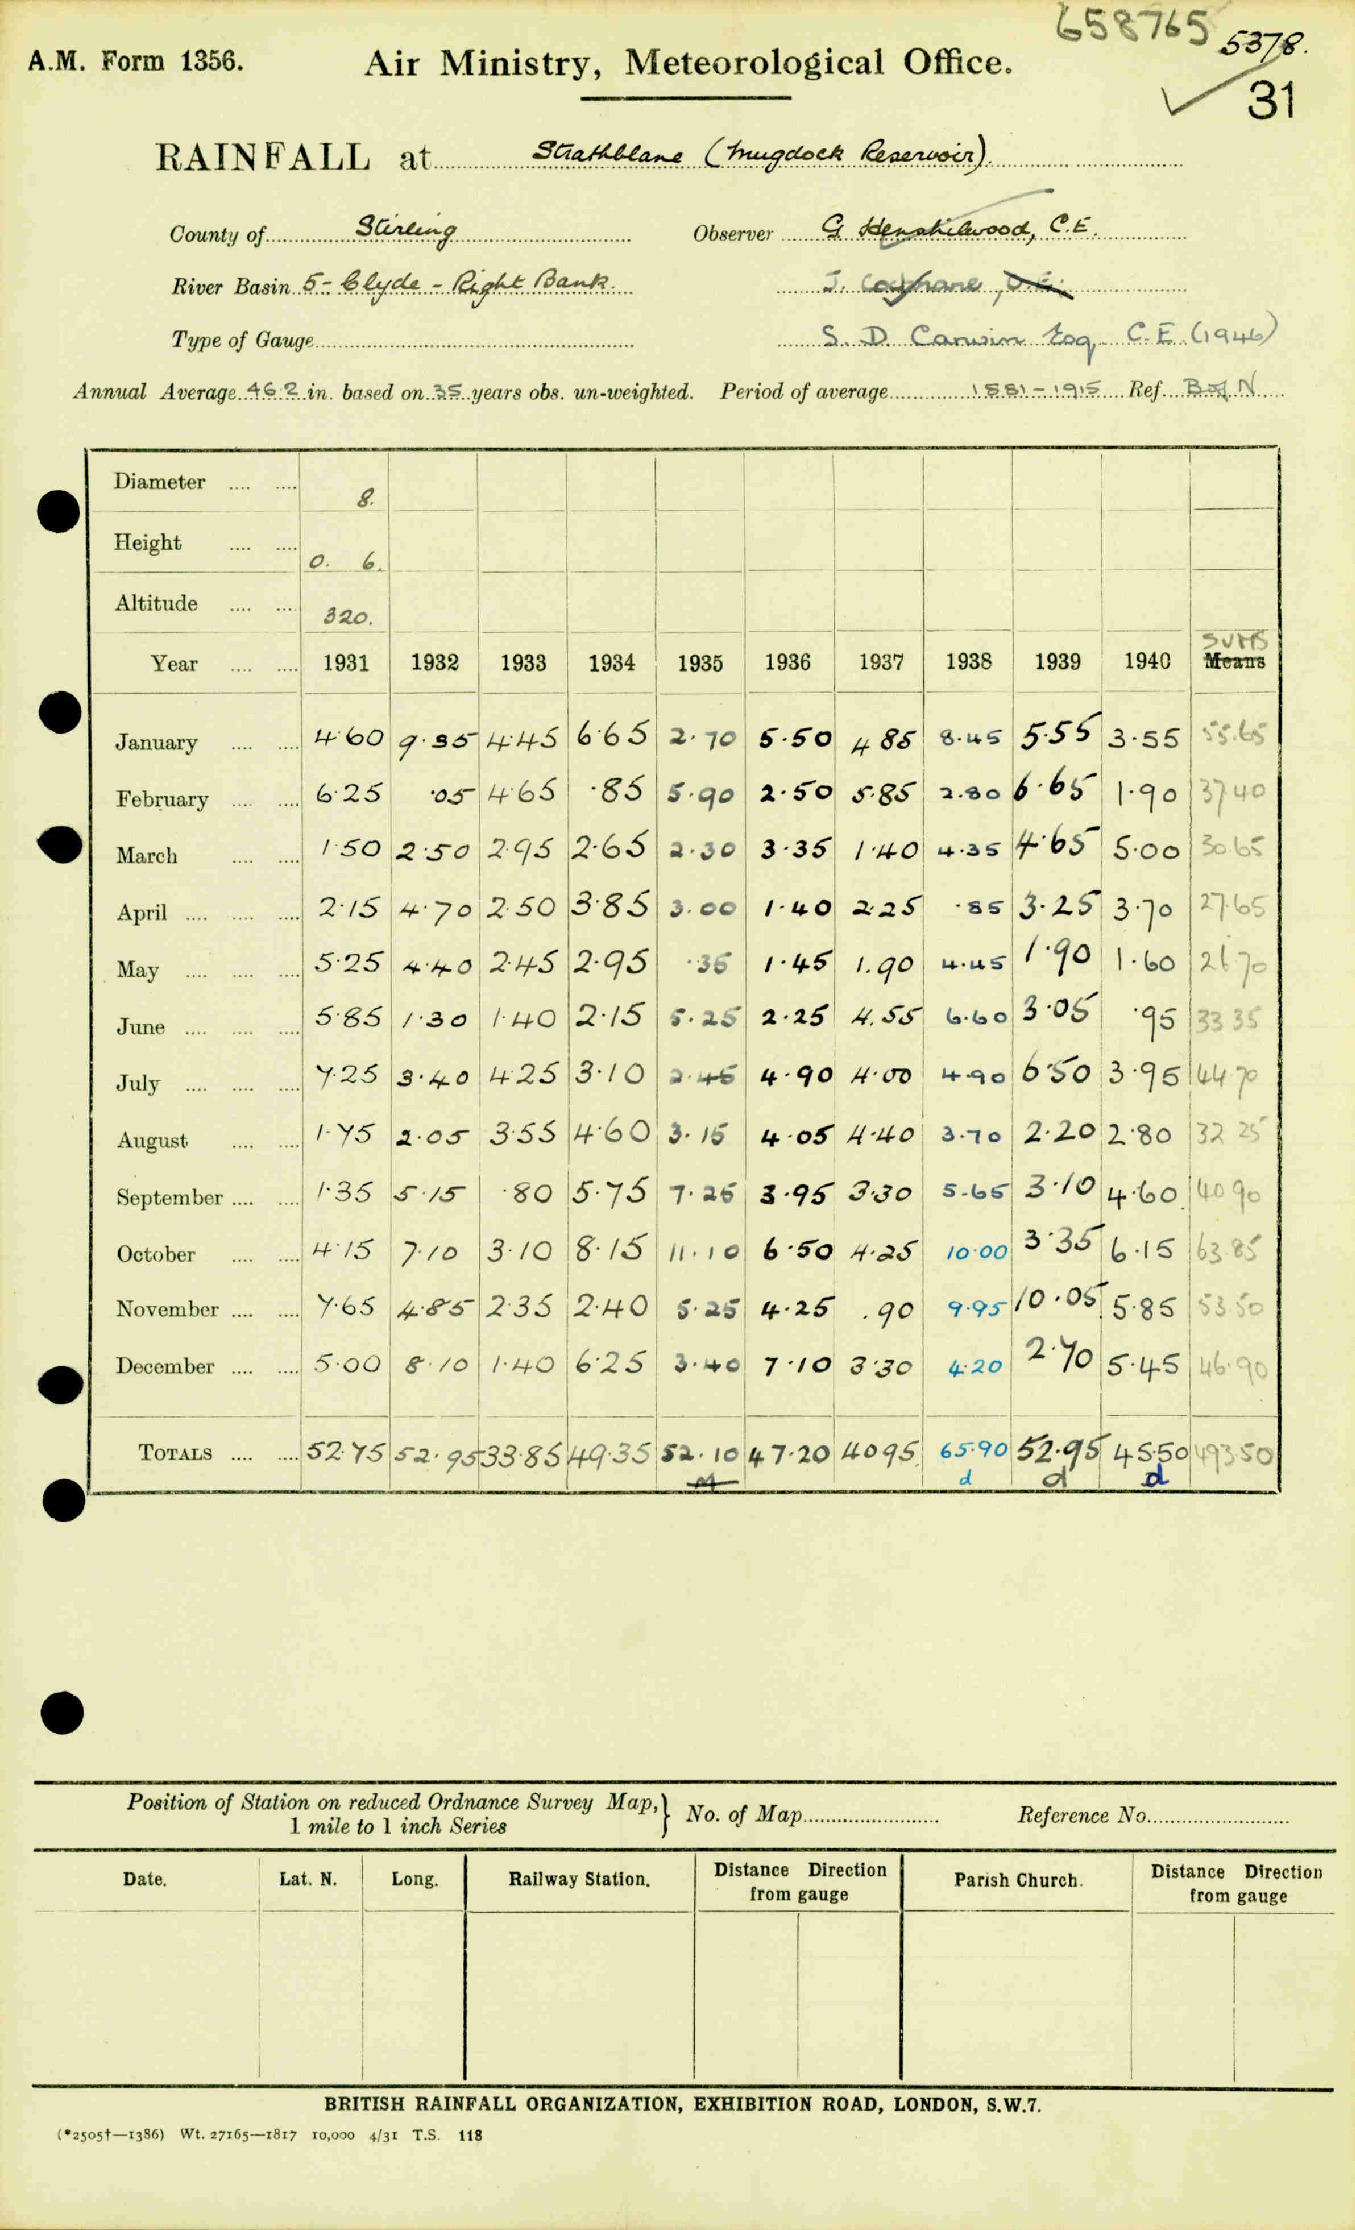 658765 5378.
A.M. Form 1356. Air Ministry, Meteorological Office.
31
RAINFALL at Strathblane (Mugdock Reservoir)
County of Stirling Observer G Henshilwood, C.E.
River Basin 5 - Clyde - Right Bank J. Cochrane, C.E.
Type of Gauge S. D. Canvin Esq. C.E. (1946)
Annual Average 46.2 in. based on 35 years obs. un-weighted. Period of average 1881-1915 Ref. B N
Diameter .... .... 8.
Height .... .... 0. 6.
Altitude .... .... 320.
SUMS
Year .... .... 1931 1932 1933 1934 1935 1936 1937 1938 1939 1940 Means
January .... .... 4.60 9.35 4.45 6.65 2.70 5.50 4.85 8.45 5.55 3.55 55.65
February .... .... 6.25 .05 4.65 .85 5.90 2.50 5.85 2.80 6.65 1.90 37.40
March .... .... 1.50 2.50 2.95 2.65 2.30 3.35 1.40 4.35 4.65 5.00 30.65
April .... .... .... 2.15 4.70 2.50 3.85 3.00 1.40 2.25 .85 3.25 3.70 27.65
May .... .... .... 5.25 4.40 2.45 2.95 .35 1.45 1.90 4.45 1.90 1.60 26.70
June .... .... .... 5.85 1.30 1.40 2.15 5.25 2.25 4.55 6.60 3.05 .95 33.35
July .... .... .... 7.25 3.40 4.25 3.10 2.45 4.90 4.00 4.90 6.50 3.95 44.70
August .... .... 1.75 2.05 3.55 4.60 3.15 4.05 4.40 3.70 2.20 2.80 32.25
September .... .... 1.35 5.15 .80 5.75 7.25 3.95 3.30 5.65 3.10 4.60 40.90
October .... .... 4.15 7.10 3.10 8.15 11.10 6.50 4.25 10.00 3.35 6.15 63.85
November .... .... 7.65 4.85 2.35 2.40 5.25 4.25 .90 9.95 10.05 5.85 53.50
December .... .... 5.00 8.10 1.40 6.25 3.40 7.10 3.30 4.20 2.70 5.45 46.90
TOTALS .... .... 52.75 52.95 33.85 49.35 52.10 47.20 40.95 65.90 52.95 45.50 493.50
M d d d
Position of Station on reduced Ordnance Survey Map, } No. of Map Reference No.
1 mile to 1 inch Series
Date. Lat. N. Long. Railway Station. Distance Direction from gauge Parish Church. Distance Direction from gauge
BRITISH RAINFALL ORGANIZATION, EXHIBITION ROAD, LONDON, S.W.7.
(*2505†—1386) Wt. 27165—1817 10,000 4/31 T.S. 118